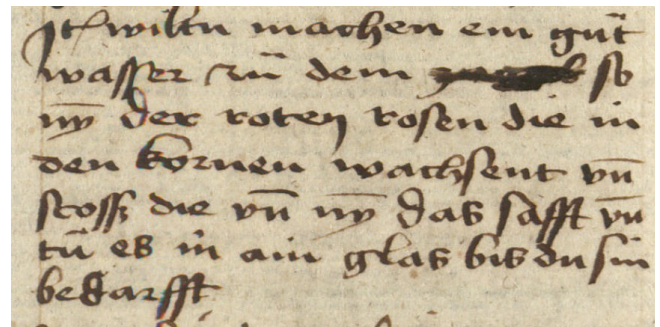 Itꝭ wiltu machen ein gůt
wasser zů dem so
nȳ der roten rosen die in
den kornen wachsent vn̄
stoss die vn̄ nȳ das safft vn̄
tů es in ain glas bis du sin
bedarfft